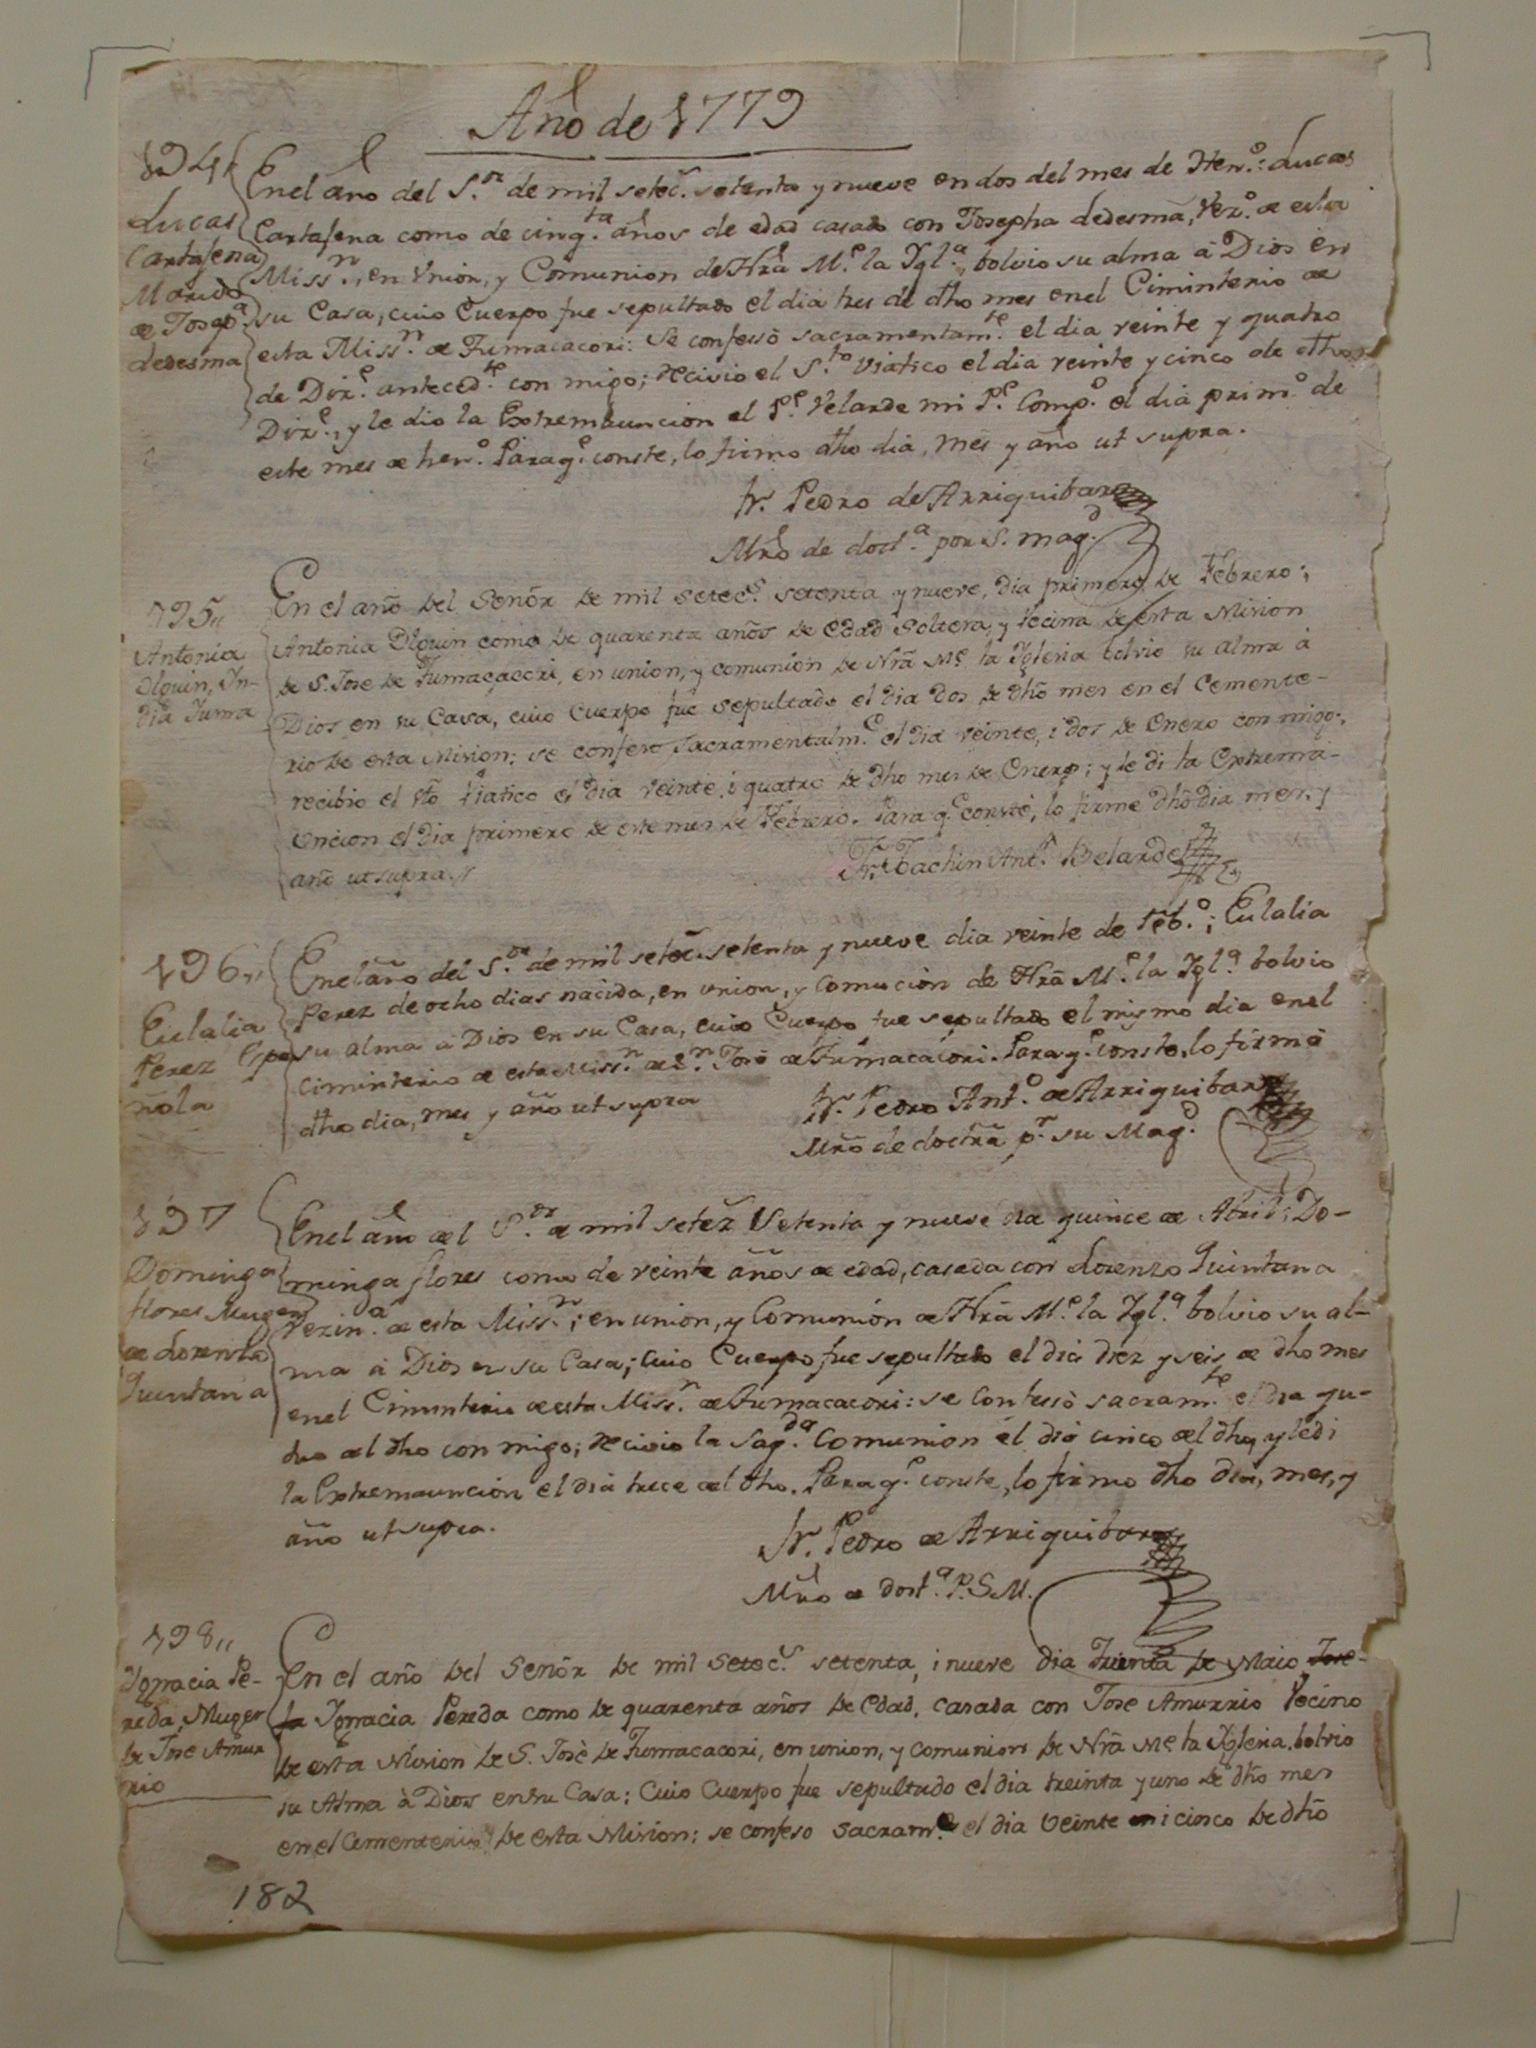 Año de 1779
194,,
Lucas
Cartagena
Marido
de Josepª
Ledesma
En el año del S.or de mil setec.s setenta y nueve en dos del mes de Hen.º: Lucas
Cartagena como de cinq.ta años de edad casado con Josepha Ledesma, Vez.º de esta
Miss.n, en Union, y Comunion de Nrã M.e la Ygl.ª, bolvio su alma à Dios en
su Casa, cuio Cuerpo fue sepultado el dia tres de dho mes en el Ciminterio de
esta Miss.n de Tumacacori: Se confessò sacramentam.te el dia veinte y quatro
de Diz.e anteced.te con migo; recivio el S.to Viatico el dia veinte y cinco de dho
Diz.e, y le dio la Extremauncion el P.e Velarde mi P.e Comp.º el dia prim.º de
este mes de hen.º Para q.e conste, lo firmo dho dia, mes y año ut supra.
Fr. Pedro de Arriquibar
Mrõ de doct.ª por S. Mag.d
195,,
Antonia
Olguin, Yn-
dia Yuma
En el año del Señor de mil setec.s setenta y nueve, dia primero de Febrero;
Antonia Olguin como de quarenta años de edad Soltera, y Vecina de esta Mision
de S. Jose de Tumacacori, en union, y comunion de Nrã Me la Yglesia bolvio su alma à
Dios en su Casa, cuio Cuerpo fue sepultado el dia dos de dho mes en el Cemente-
rio de esta Mision: se confeso sacramentalm.e el dia veinte, i dos de Enero con migo;
recibio el Sto Viatico el dia veinte, i quatro de dho mes de Enero; y le di la Extrema-
Uncion el dia primero de este mes de Febrero. Para q.e conste, lo firme dho dia mes, y
año ut supra.
Fr. Joachin Ant.º Belarde
196,,
Eulalia
Perez Espa
ñola
En el año del S.or de mil setec.s setenta y nueve dia veinte de Feb.º; Eulalia
Perez de ocho dias nacida, en union, y Comucion de Nrã M.e la Ygl.ª bolvio
su alma à Dios en su Casa, cuio Cuerpo fue sepultado el mismo dia en el
Ciminterio de esta Miss.n de S.n Jose de Tumacacori. Para q.e conste, lo firmo
dho dia, mes y año ut supra
Fr. Pedro Ant.º de Arriquibar
Mrõ de doctrã p.r su Mag.d
197
Dominga
flores Muger
de Lorenzo
Quintana
En el año del S.or de mil setez.s Setenta y nueve dia quince de Abril; Do-
minga flores como de veinte años de edad, casada con Lorenzo Quintana
Vezin.ª de esta Miss.n; en union, y Comunion de Nrã M.e la Ygl.ª bolvio su al-
ma à Dios en su Casa; cuio Cuerpo fue sepultado el dia diez y seis de dho mes
en el Ciminterio de esta Miss.n de Tumacacori: se Confessò sacram.te el dia qu-
tro del dho con migo; recivio la Sag.da Comunion el dia cinco del dho, y le di
la Extremauncion el dia trece del dho. Para q.e conste, lo firmo dho dia, mes, y
año ut supra.
Fr. Pedro de Arriquibar
Mrõ de doct.ª P. S. M.
198,,
Ygnacia Pe-
reda, Muger
de Jose Amur
rio
En el año del Señor de mil setec.s setenta, i nueve dia Treinta de Maio Jose-
fa Ygnacia Pereda como de quarenta años de edad, casada con Jose Amurrio Vecino
de esta Mision de S. Josè de Tumacacori, en union, y comunion de Nrã Me la Yglesia bolvio
su Alma à Dios en su Casa; Cuio Cuerpo fue sepultado el dia treinta y uno de dho mes
en el Cementerio de esta Mision; se confeso sacram.e el dia veinte i cinco de dho
182